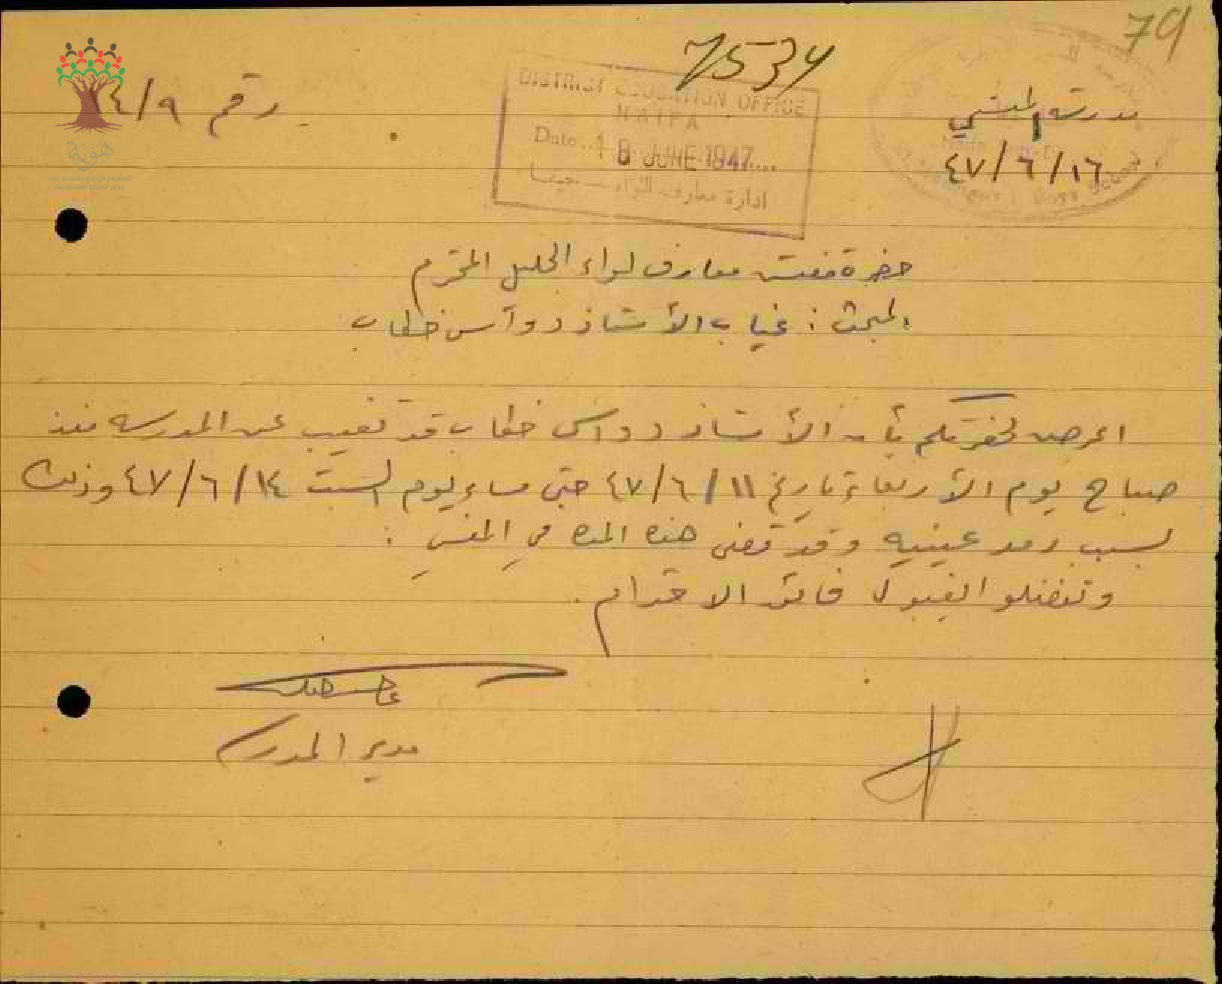 79
7534
رقم ٤/٩
DISTRICT EDUCATION OFFICE
HAIFA
Date 18 JUNE 1947
ادارة معارف اللواء - حيفا
مدرسة
٤٧/٦/١٦
هوية
حضرة مفتش معارف لواء الجليل المحترم
المبحث : غياب الأستاذ دواس خطاب
اعرض لحضرتكم بأن الأستاذ دواس خطاب قد تغيب عن المدرسه منذ
صباح يوم الأربعاء تاريخ ٤٧/٦/١١ حتى مساء يوم السبت ٤٧/٦/١٤ وذلك
بسبب رمد عينيه وقد قضى هذه المده في :
وتفضلو القبول فائق الاحترام .
مدير المدرسه